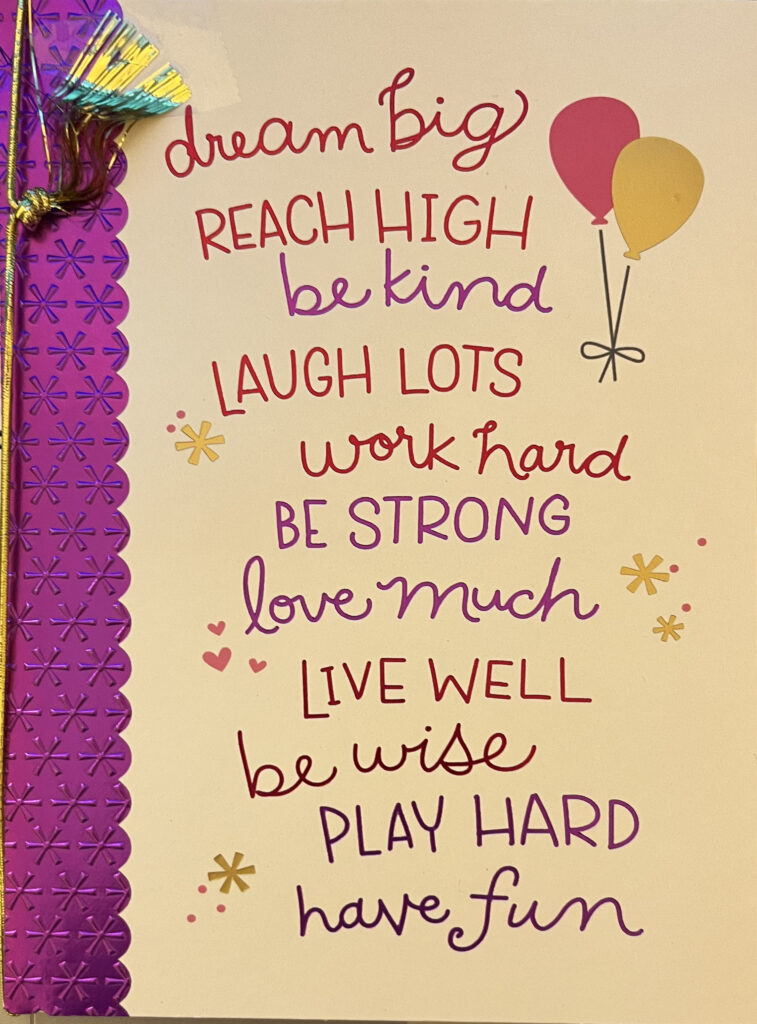 dream big
REACH HIGH
be kind
LAUGH LOTS
work hard
BE STRONG
love much
LIVE WELL
be wise
PLAY HARD
have fun